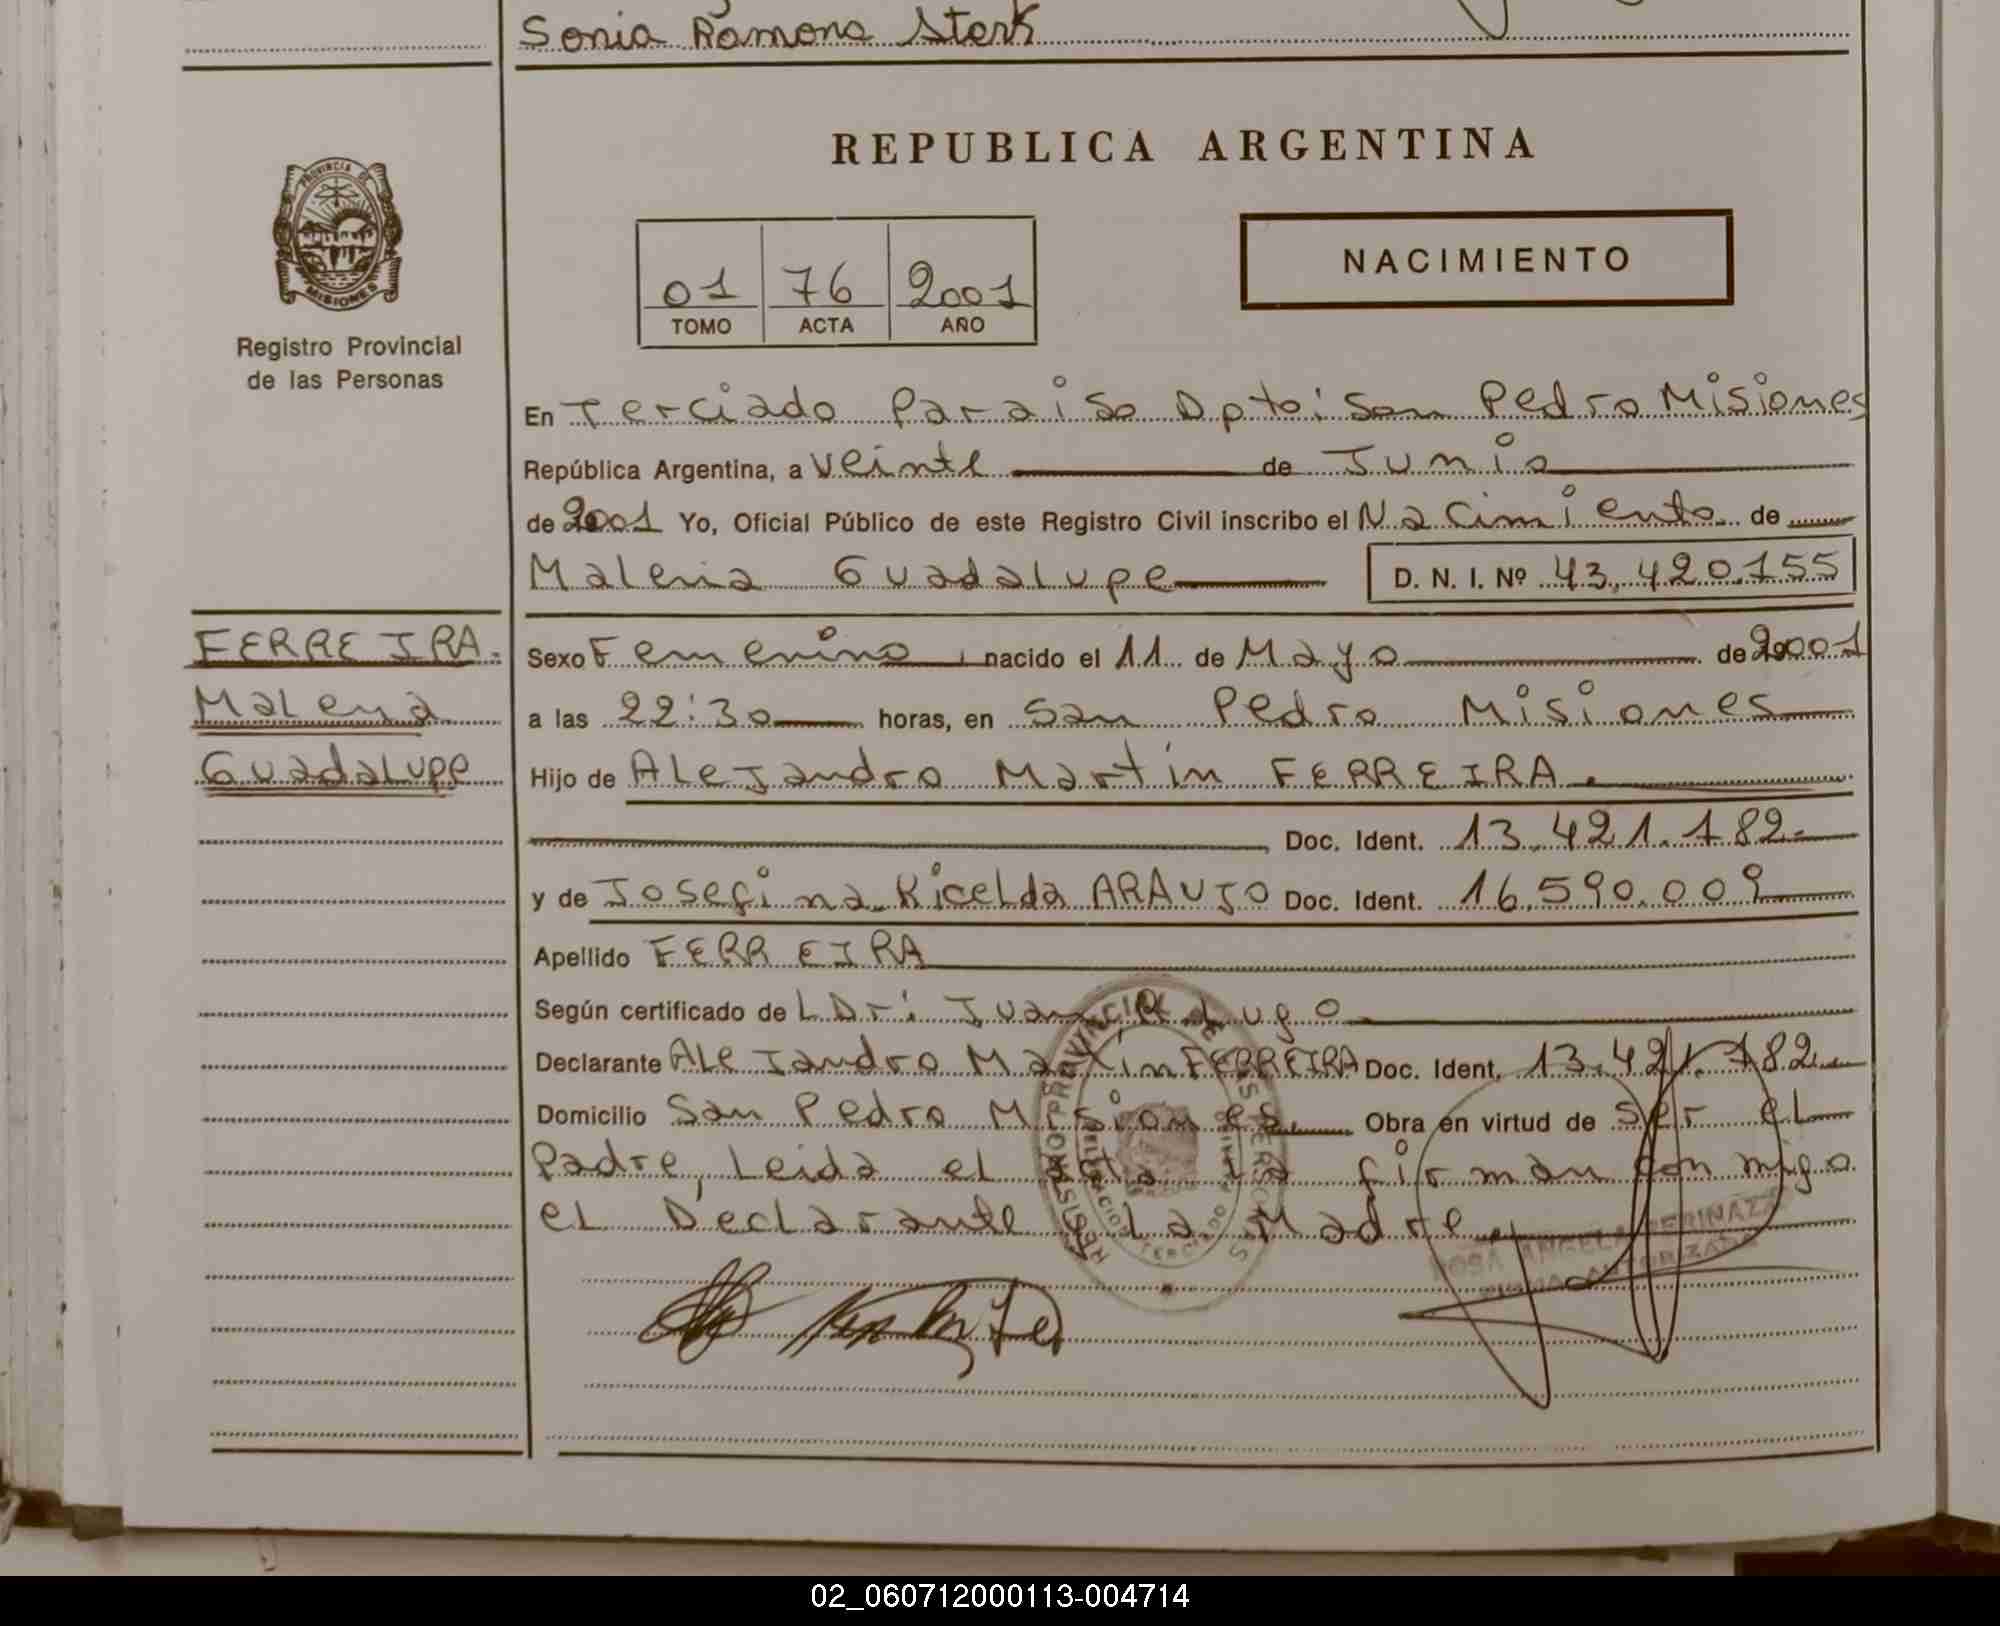 Sonia Ramona Sterk
REPUBLICA ARGENTINA
PROVINCIA DE
MISIONES
Registro Provincial
de las Personas
01 76 2001
TOMO ACTA AÑO
NACIMIENTO
En Terciado Paraiso Dpto: San Pedro Misiones
República Argentina, a Veinte de Junio
de 2001 Yo, Oficial Público de este Registro Civil inscribo el Nacimiento de
Malena Guadalupe D. N. I. Nº 43.420.155
FERREIRA.
Malena
Guadalupe
Sexo Femenino, nacido el 11 de Mayo de 2001
a las 22:30 horas, en San Pedro Misiones
Hijo de Alejandro Martín FERREIRA.
Doc. Ident. 13.421.182
y de Josefina Ricelda ARAUJO Doc. Ident. 16.590.009
Apellido FERREIRA
Según certificado de L Dr: Juan R Lugo
Declarante Alejandro Martín FERREIRA Doc. Ident. 13.421.182
Domicilio San Pedro Misiones Obra en virtud de ser el
Padre, Leida el acta la firman conmigo
el Declarante y La Madre
REGISTRO PROVINCIAL DE LAS PERSONAS
TERCIADO
ROSA ANGELA
FIRMA AUTORIZADA
02_060712000113-004714